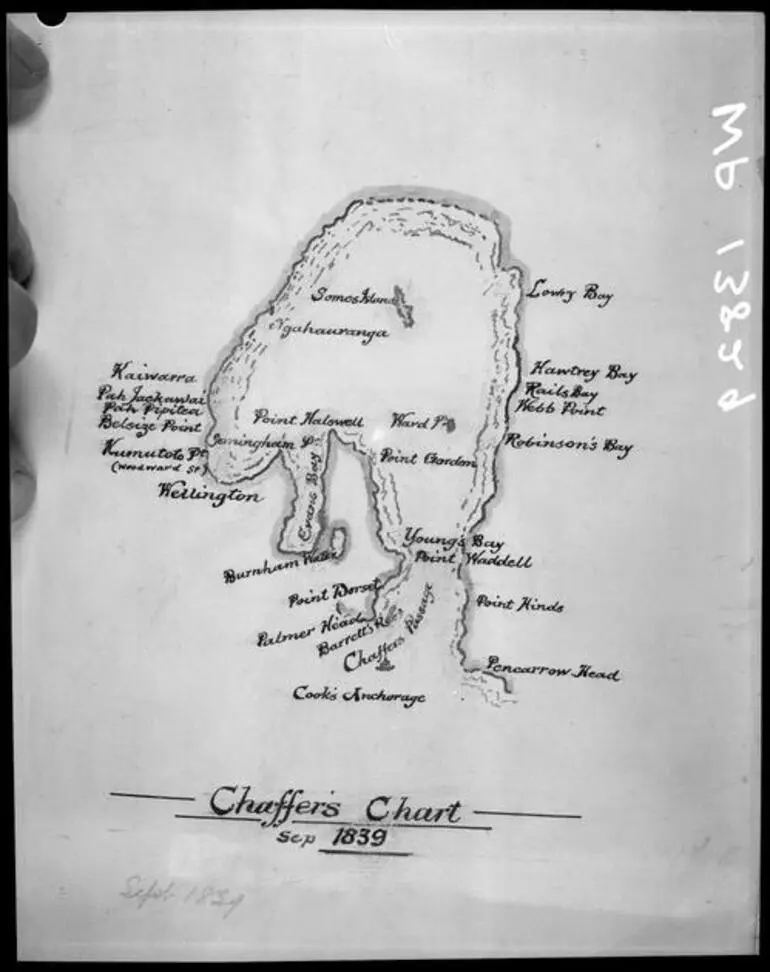 MP 1382d
Lowry Bay
Somes Island
Ngahauranga
Kaiwarra
Hawtrey Bay
Pah Jackawai
Rails Bay
Pah Pipitea
Webb Point
Belsize Point
Point Halswell
Ward Is
Jerningham Pt
Robinson's Bay
Kumutoto Pt
(Woodward St)
Point Gordon
Wellington
Evans Bay
Young's Bay
Burnham Water
Point Waddell
Point Dorset
Point Hinds
Palmer Head
Barrett's Reef
Chaffers Passage
Pencarrow Head
Cook's Anchorage
Chaffers Chart
Sep 1839
Sept 1839